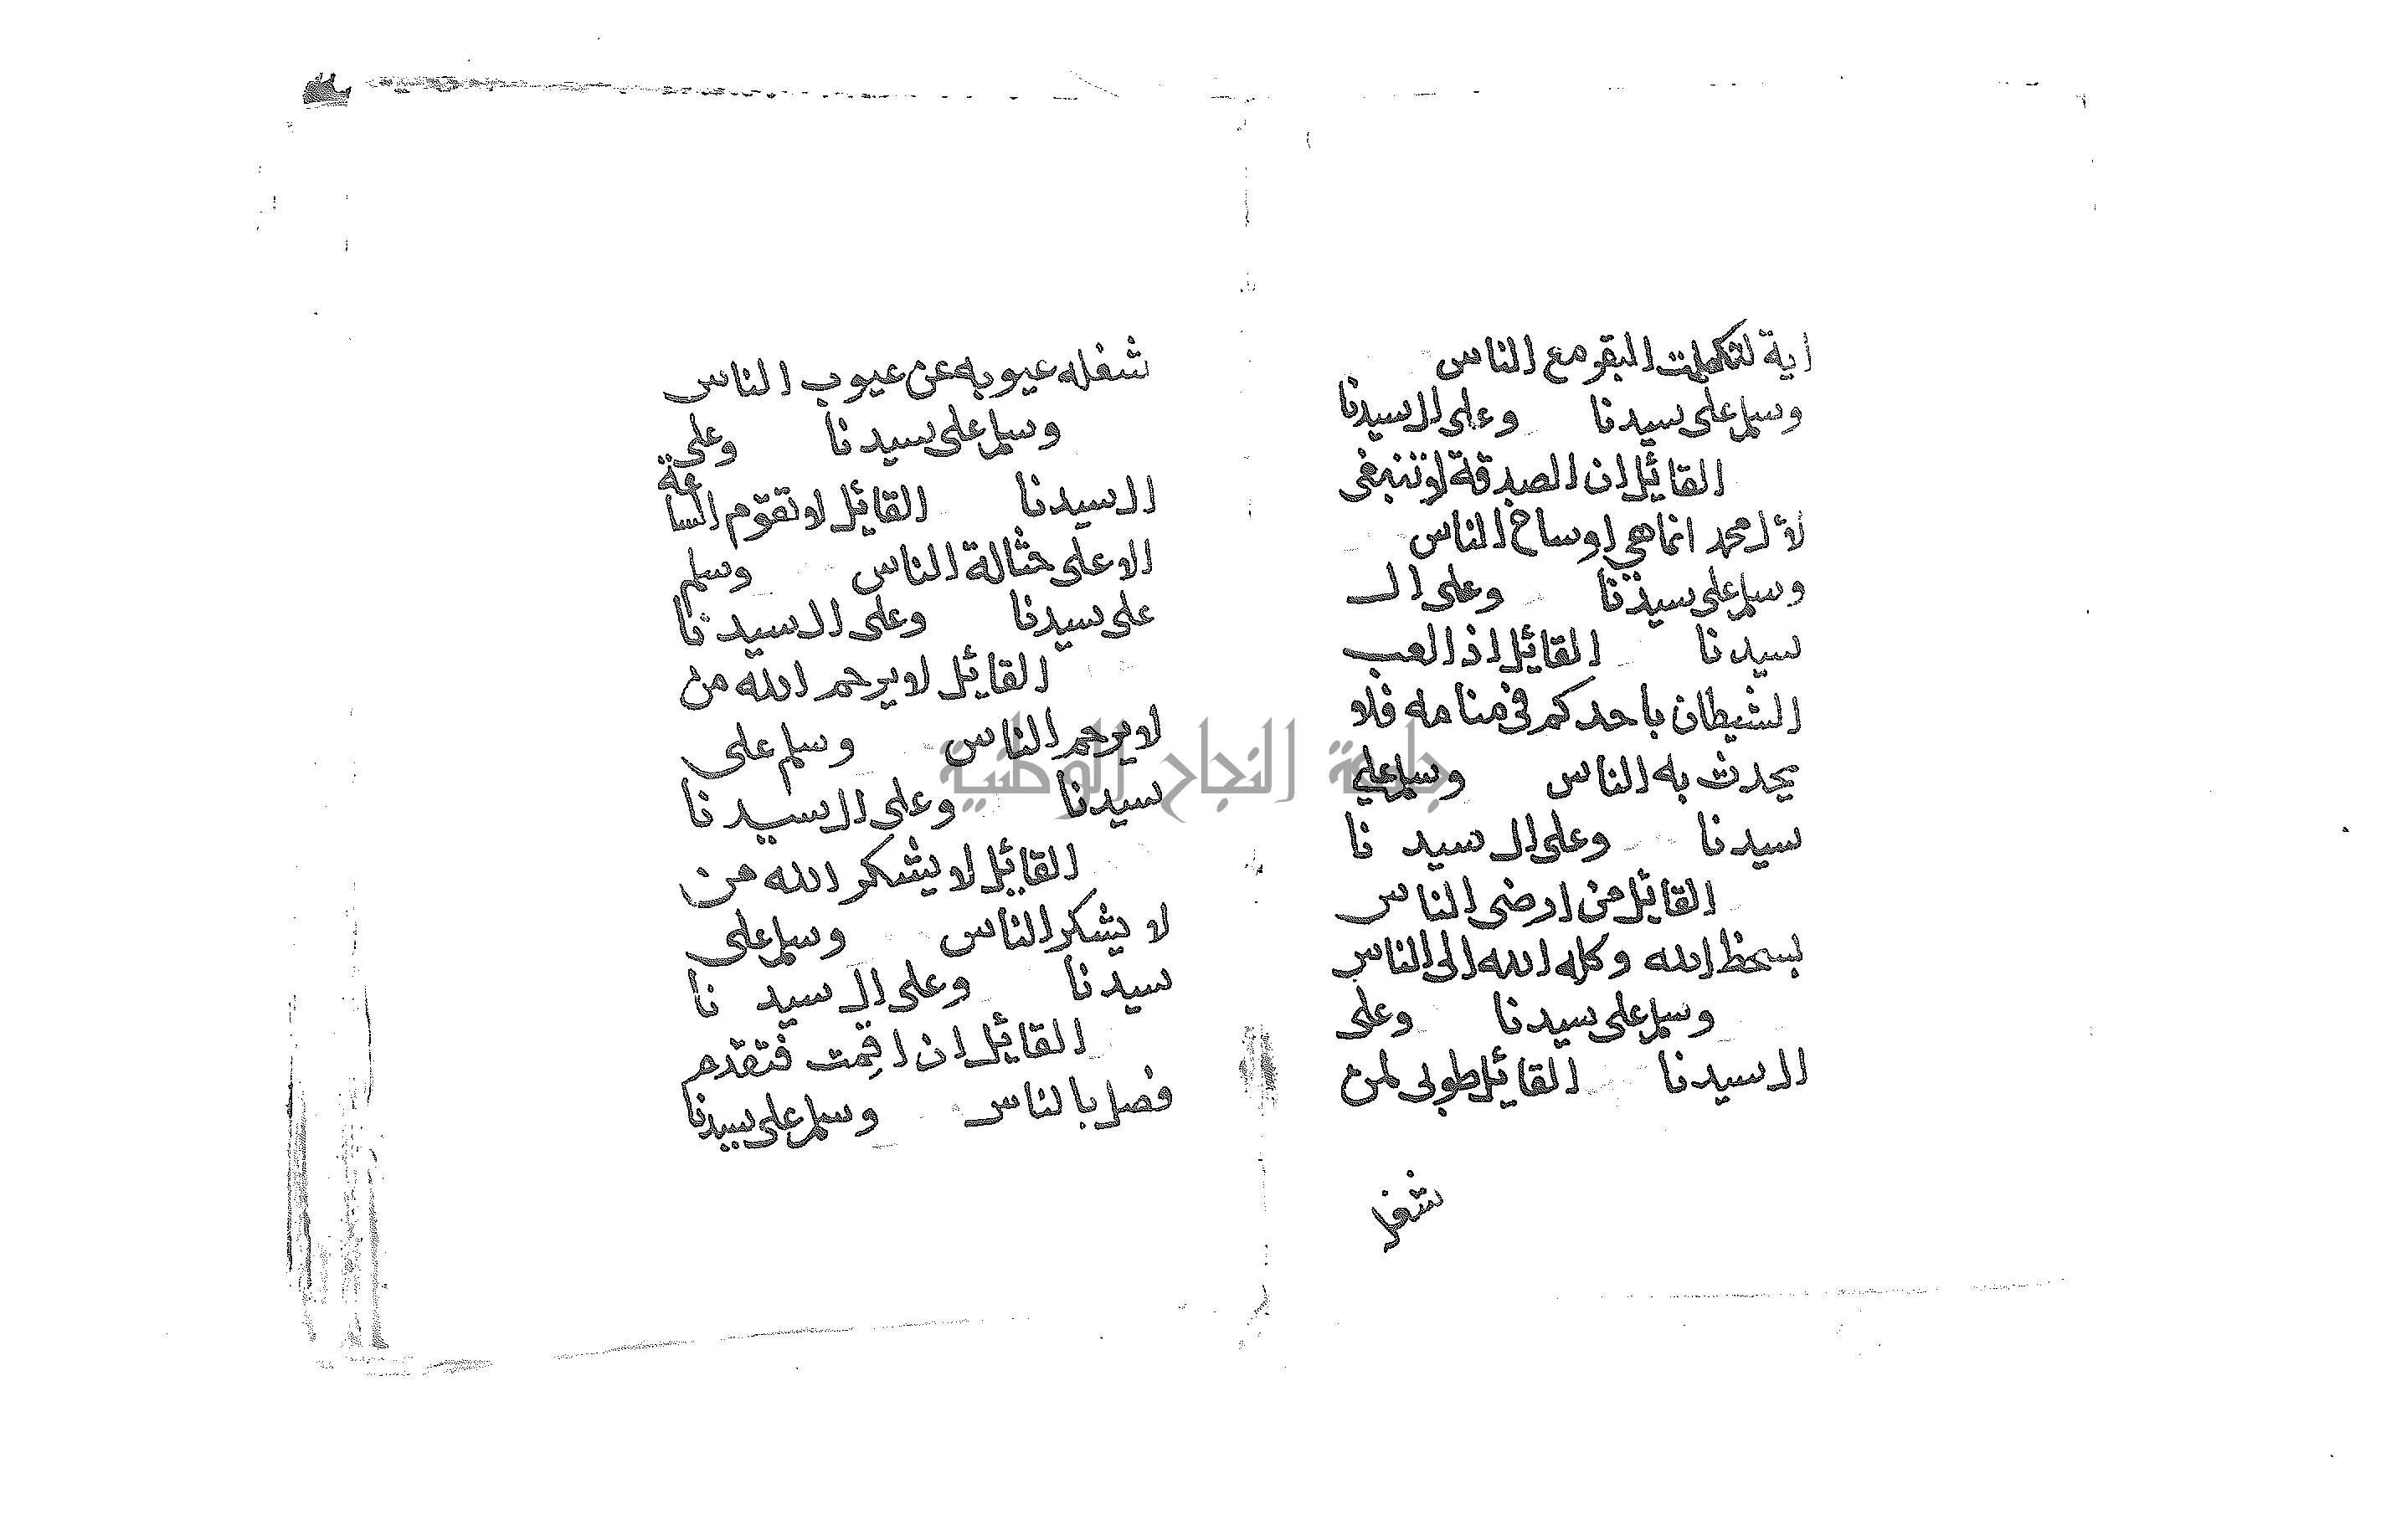 اية لتكلمت البقر مع الناس
وسلم على سيدنا وعلى ال سيدنا
القائل ان الصدقة لا تنبغى
لأل محمد انما هي اوساخ الناس
وسلم على سيدنا وعلى ال
سيدنا القائل اذ العب
الشيطان باحدكم في منامه فلا
يحدث به الناس وسلم على
سيدنا وعلى ال سيد نا
القائل من ارضى الناس
بسخط الله وكله الله الى الناس
وسلم على سيدنا وعلى
ال سيدنا القائل طوبى لمن
شغل
شغله عيوبه عن عيوب الناس
وسلم على سيدنا وعلى
ال سيدنا القائل لا تقوم الساعة
الا على حثالة الناس وسلم
على سيدنا وعلى ال سيد نا
القائل لا يرحم الله من
لا يرحم الناس وسلم على
سيدنا وعلى ال سيد نا
القائل لا يشكر الله من
لا يشكر الناس وسلم على
سيدنا وعلى ال سيد نا
القائل ان اقمت فتقدم
فصل بالناس وسلم على سيدنا
جامعة النجاح الوطنية